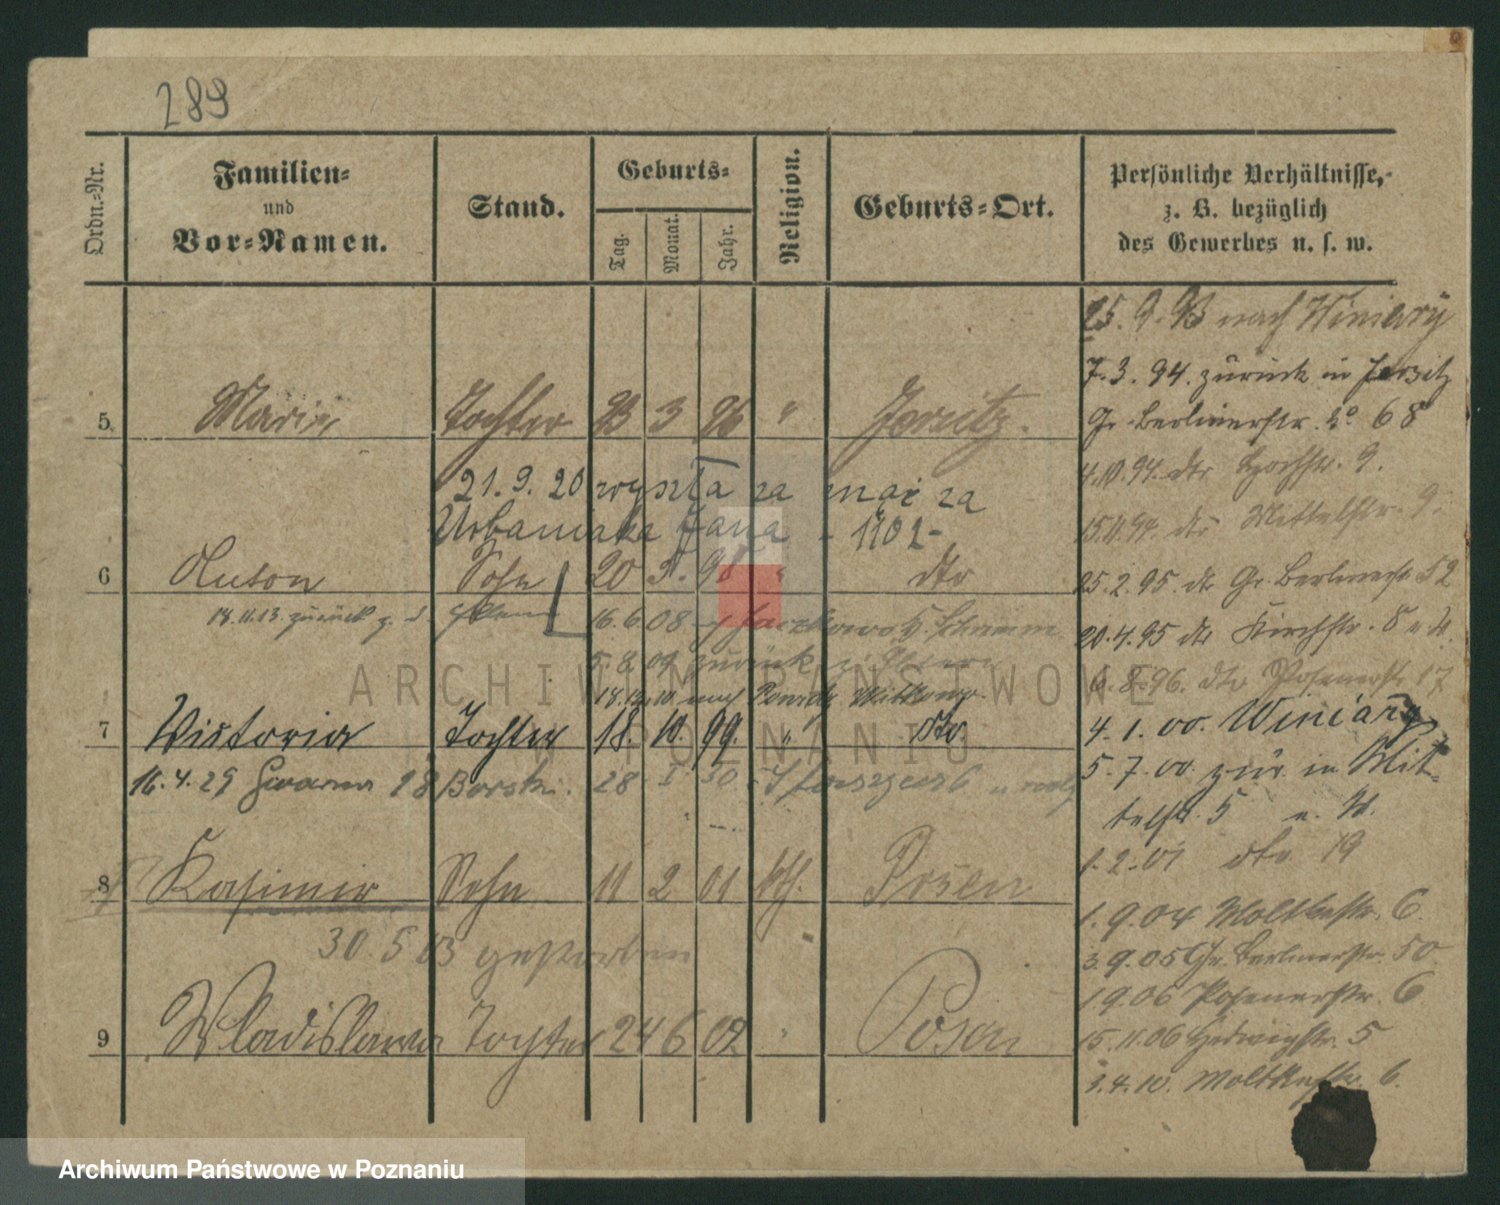 289
Ordn.-Nr.
Familien-
und
Vor-Namen.
Stand.
Geburts-
Tag.
Monat.
Jahr.
Religion.
Geburts-Ort.
Persönliche Verhältnisse,
z. B. bezüglich
des Gewerbes u. s. w.
25. 9. 93 nach Winiary
7. 3. 94. zurück in Jersitz
Gr. Berlinerstr. 68
5. Maria Tochter 23 3 96 " Jersitz.
4.10.94. dto Hochstr. 9.
21. 9. 20 wyszła za mąż za
Urbaniaka Jana - 1102-
15.11.94. dto Mittelstr. 9.
6 Anton Sohn 20 5. 98 " dto
25. 2. 95. dto Gr. Berlinerstr. 52
18.11.13. zurück z. 16. 6. 08
20. 4. 95 dto Kirchstr. 8
5. 8. 09 zurück
6. 8. 96. dto Posenerstr. 17
18.12.10 nach Powidz Witkowo.
7 Victoria Tochter 18. 10. 99. " dto
4. 1. 00. Winiary
5. 7. 00. zur. in Mit-
telstr. 5
16. 4. 29 Gwarna 18 Borski. 28 I 30
1. 2. 01 dto 19
8 Kasimir Sohn 11 2 01 kth. Posen
1. 9. 04 Moltkestr. 6
30. 5 03 gestorben
3. 9. 05 Gr. Berlinerstr. 50.
1. 9. 06 Posenerstr. 6
9 Wladislawa Tochter 24 6 02 " Posen
15. 11. 06 Hedwigstr. 5
1. 4. 10. Moltkestr. 6.
ARCHIWUM PAŃSTWOWE
W POZNANIU
Archiwum Państwowe w Poznaniu